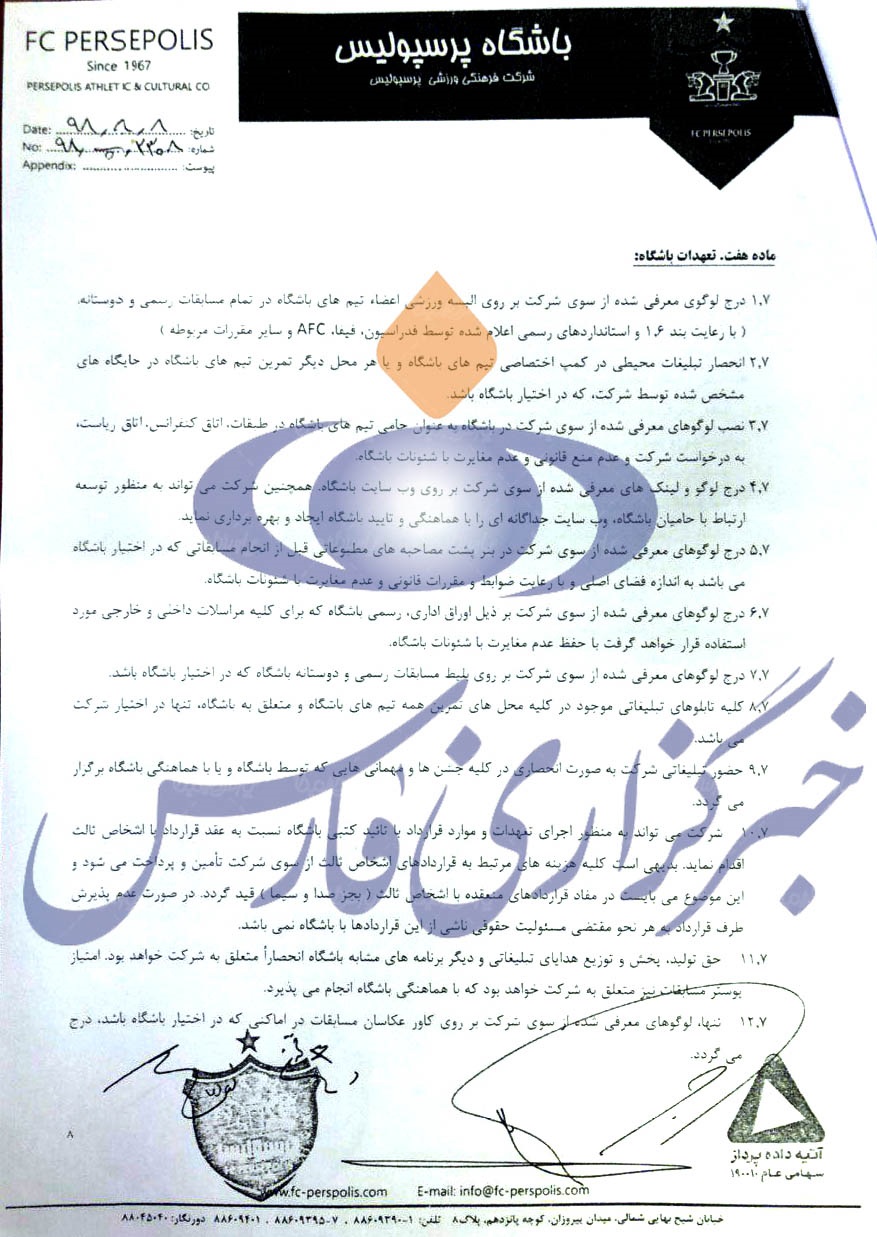 FC PERSEPOLIS
Since 1967
PERSEPOLIS ATHLETIC & CULTURAL CO
باشگاه پرسپولیس
شرکت فرهنگی ورزشی پرسپولیس
FC PERSEPOLIS
Date: ۹۸,۸,۸ تاریخ:
No: شماره:
Appendix: پیوست:
ماده هفت. تعهدات باشگاه:
۱,۷ درج لوگوی معرفی شده از سوی شرکت بر روی البسه ورزشی اعضاء تیم های باشگاه در تمام مسابقات رسمی و دوستانه.
( با رعایت بند ۱,۶ و استانداردهای رسمی اعلام شده توسط فدراسیون، فیفا، AFC و سایر مقررات مربوطه )
۲,۷ انحصار تبلیغات محیطی در کمپ اختصاصی تیم های باشگاه و یا هر محل دیگر تمرین تیم های باشگاه در جایگاه های
مشخص شده توسط شرکت، که در اختیار باشگاه باشد.
۳,۷ نصب لوگوهای معرفی شده از سوی شرکت در باشگاه به عنوان حامی تیم های باشگاه در طبقات، اتاق کنفرانس، اتاق ریاست،
به درخواست شرکت و عدم منع قانونی و عدم مغایرت با شئونات باشگاه.
۴,۷ درج لوگو و لینک های معرفی شده از سوی شرکت بر روی وب سایت باشگاه. همچنین شرکت می تواند به منظور توسعه
ارتباط با حامیان باشگاه، وب سایت جداگانه ای را با هماهنگی و تایید باشگاه ایجاد و بهره برداری نماید.
۵,۷ درج لوگوهای معرفی شده از سوی شرکت در بنر پشت مصاحبه های مطبوعاتی قبل از انجام مسابقاتی که در اختیار باشگاه
می باشد به اندازه فضای اصلی و با رعایت ضوابط و مقررات قانونی و عدم مغایرت با شئونات باشگاه.
۶,۷ درج لوگوهای معرفی شده از سوی شرکت بر ذیل اوراق اداری، رسمی باشگاه که برای کلیه مراسلات داخلی و خارجی مورد
استفاده قرار خواهد گرفت با حفظ عدم مغایرت با شئونات باشگاه.
۷,۷ درج لوگوهای معرفی شده از سوی شرکت بر روی بلیط مسابقات رسمی و دوستانه باشگاه که در اختیار باشگاه باشد.
۸,۷ کلیه تابلوهای تبلیغاتی موجود در کلیه محل های تمرین همه تیم های باشگاه و متعلق به باشگاه، تنها در اختیار شرکت
می باشد.
۹,۷ حضور تبلیغاتی شرکت به صورت انحصاری در کلیه جشن ها و مهمانی هایی که توسط باشگاه و یا با هماهنگی باشگاه برگزار
می گردد.
۱۰,۷ شرکت می تواند به منظور اجرای تعهدات و موارد قرارداد با تائید کتبی باشگاه نسبت به عقد قرارداد با اشخاص ثالث
اقدام نماید. بدیهی است کلیه هزینه های مرتبط به قراردادهای اشخاص ثالث از سوی شرکت تأمین و پرداخت می شود و
این موضوع می بایست در مفاد قراردادهای منعقده با اشخاص ثالث ( بجز صدا و سیما ) قید گردد. در صورت عدم پذیرش
طرف قرارداد به هر نحو مقتضی مسئولیت حقوقی ناشی از این قراردادها با باشگاه نمی باشد.
۱۱,۷ حق تولید، پخش و توزیع هدایای تبلیغاتی و دیگر برنامه های مشابه باشگاه انحصاراً متعلق به شرکت خواهد بود. امتیاز
پوستر مسابقات نیز متعلق به شرکت خواهد بود که با هماهنگی باشگاه انجام می پذیرد.
۱۲,۷ تنها، لوگوهای معرفی شده از سوی شرکت بر روی کاور عکاسان مسابقات در اماکنی که در اختیار باشگاه باشد، درج
می گردد.
خبرگزاری فارس
۸
آتیه داده پرداز
سهامی عام ۱۹۰۰۱۰
www.fc-perspolis.com E-mail: info@fc-perspolis.com
خیابان شیخ بهایی شمالی، میدان پیروزان، کوچه پانزدهم، پلاک۸ تلفن: ۱-۸۸۶۰۹۳۹۰ ، ۷-۸۸۶۰۹۳۹۵ ، ۸۸۶۰۹۴۰۱ دورنگار: ۸۸۰۴۵۰۴۰